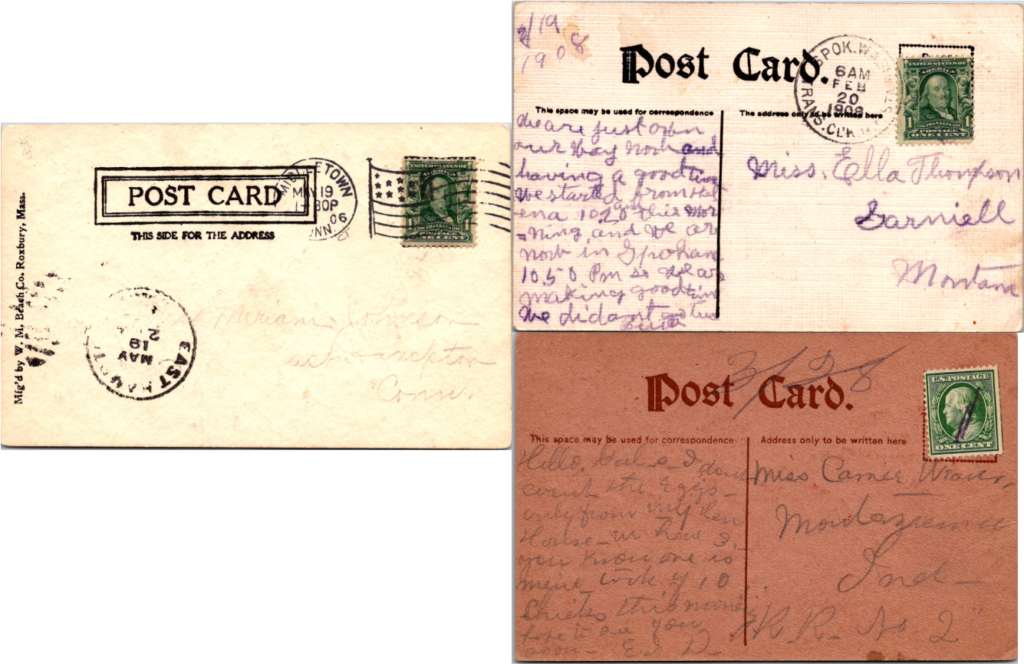 POST CARD
THIS SIDE FOR THE ADDRESS
Mfg'd by W. M. Beach Co. Roxbury, Mass.
MAY 19
30P
06
EAST HAM
MAY
19
Miriam Johnson
Conn.
2/19
1908
Post Card.
This space may be used for correspondence
The address only to be written here
SPOK. WA
6AM
FEB
20
1908
TRANS. CLK
UNITED STATES OF AMERICA
POSTAGE
ONE CENT
We are just on
our way now and
having a good time
we started from Hel
ena 10.20 this mor
-ning, and we are
now in Spokane
10.50 Pm so we are
making good time
We didant
Miss. Ella Thompson
Garniell
Montana
3/28
Post Card.
This space may be used for correspondence
Address only to be written here
U.S. POSTAGE
ONE CENT
Hello I dont
count the Eggs -
only from my Hen
House - we have 2
you know one is
mine took of 10
chicks this morning
hope to see you
soon - E. D.
Miss Carrie Weaver,
Montezuma
Ind -
R. R. No 2"